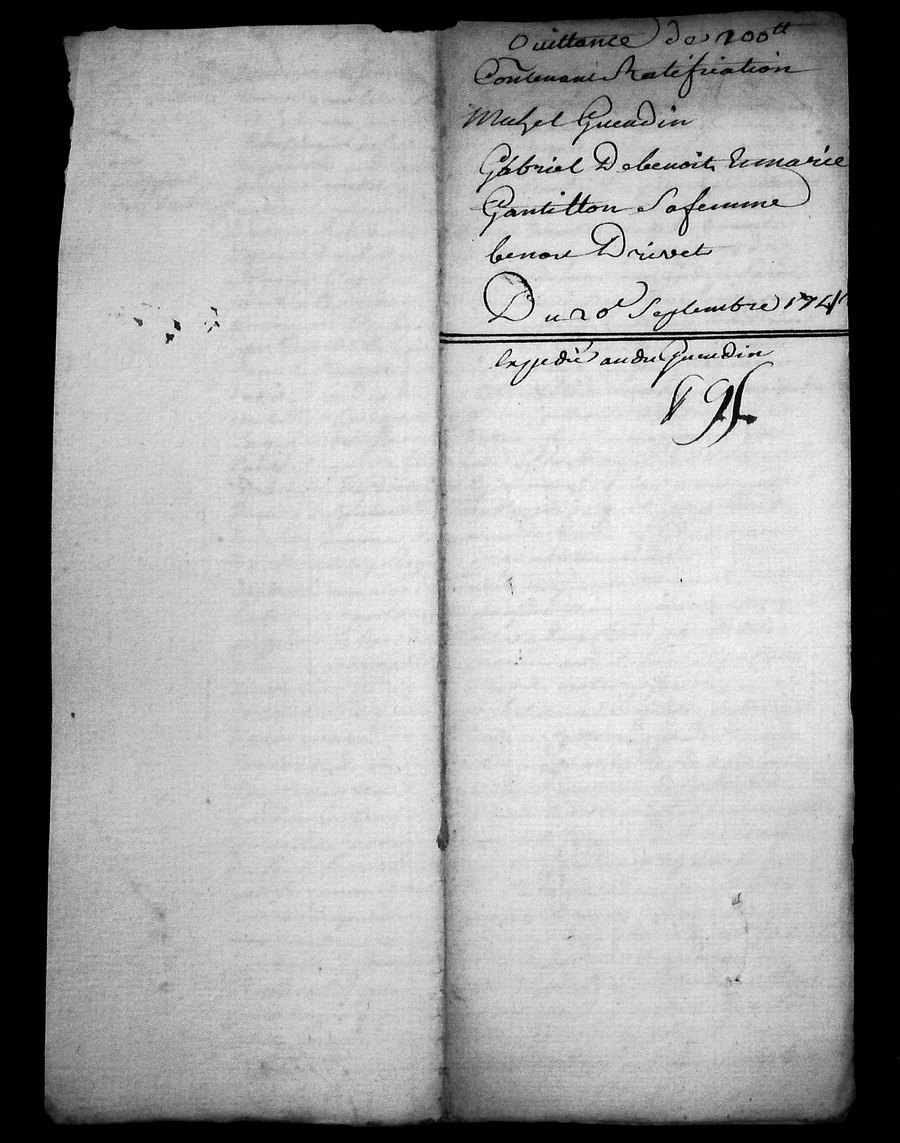 Quittance de 200tt
Contenant Ratification
Michel Gueudin
Gabriel Debenoit Et marie
Gantillon Sa femme
benoit Drivet
Du 20e Septembre 174
Expedié audit Gueudin